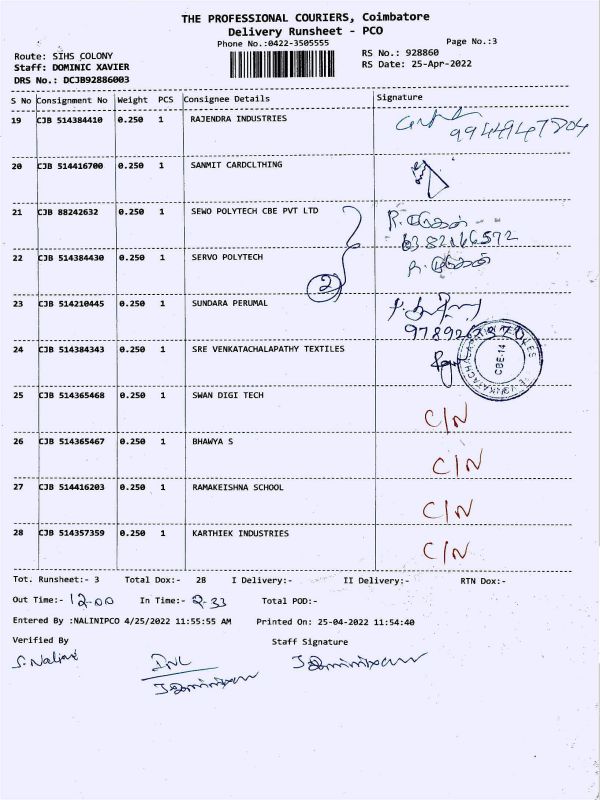 THE PROFESSIONAL COURIERS, Coimbatore
Delivery Runsheet - PCO
Phone No.:0422-3505555
Page No.:3
Route: SIHS COLONY
RS No.: 928860
Staff: DOMINIC XAVIER
RS Date: 25-Apr-2022
DRS No.: DCJB92886003
S No Consignment No Weight PCS Consignee Details Signature
19 CJB 514384410 0.250 1 RAJENDRA INDUSTRIES
9944947804
20 CJB 514416700 0.250 1 SANMIT CARDCLTHING
21 CJB 88242632 0.250 1 SEWO POLYTECH CBE PVT LTD
6382166572
22 CJB 514384430 0.250 1 SERVO POLYTECH
2
23 CJB 514210445 0.250 1 SUNDARA PERUMAL
24 CJB 514384343 0.250 1 SRE VENKATACHALAPATHY TEXTILES
CBE-14
25 CJB 514365468 0.250 1 SWAN DIGI TECH C/N
26 CJB 514365467 0.250 1 BHAWYA S C/N
27 CJB 514416203 0.250 1 RAMAKEISHNA SCHOOL C/N
28 CJB 514357359 0.250 1 KARTHIEK INDUSTRIES C/N
Tot. Runsheet:- 3 Total Dox:- 28 I Delivery:- II Delivery:- RTN Dox:-
Out Time:- 12-00 In Time:- 2-33 Total POD:-
Entered By :NALINIPCO 4/25/2022 11:55:55 AM Printed On: 25-04-2022 11:54:40
Verified By Staff Signature
S. Nalini